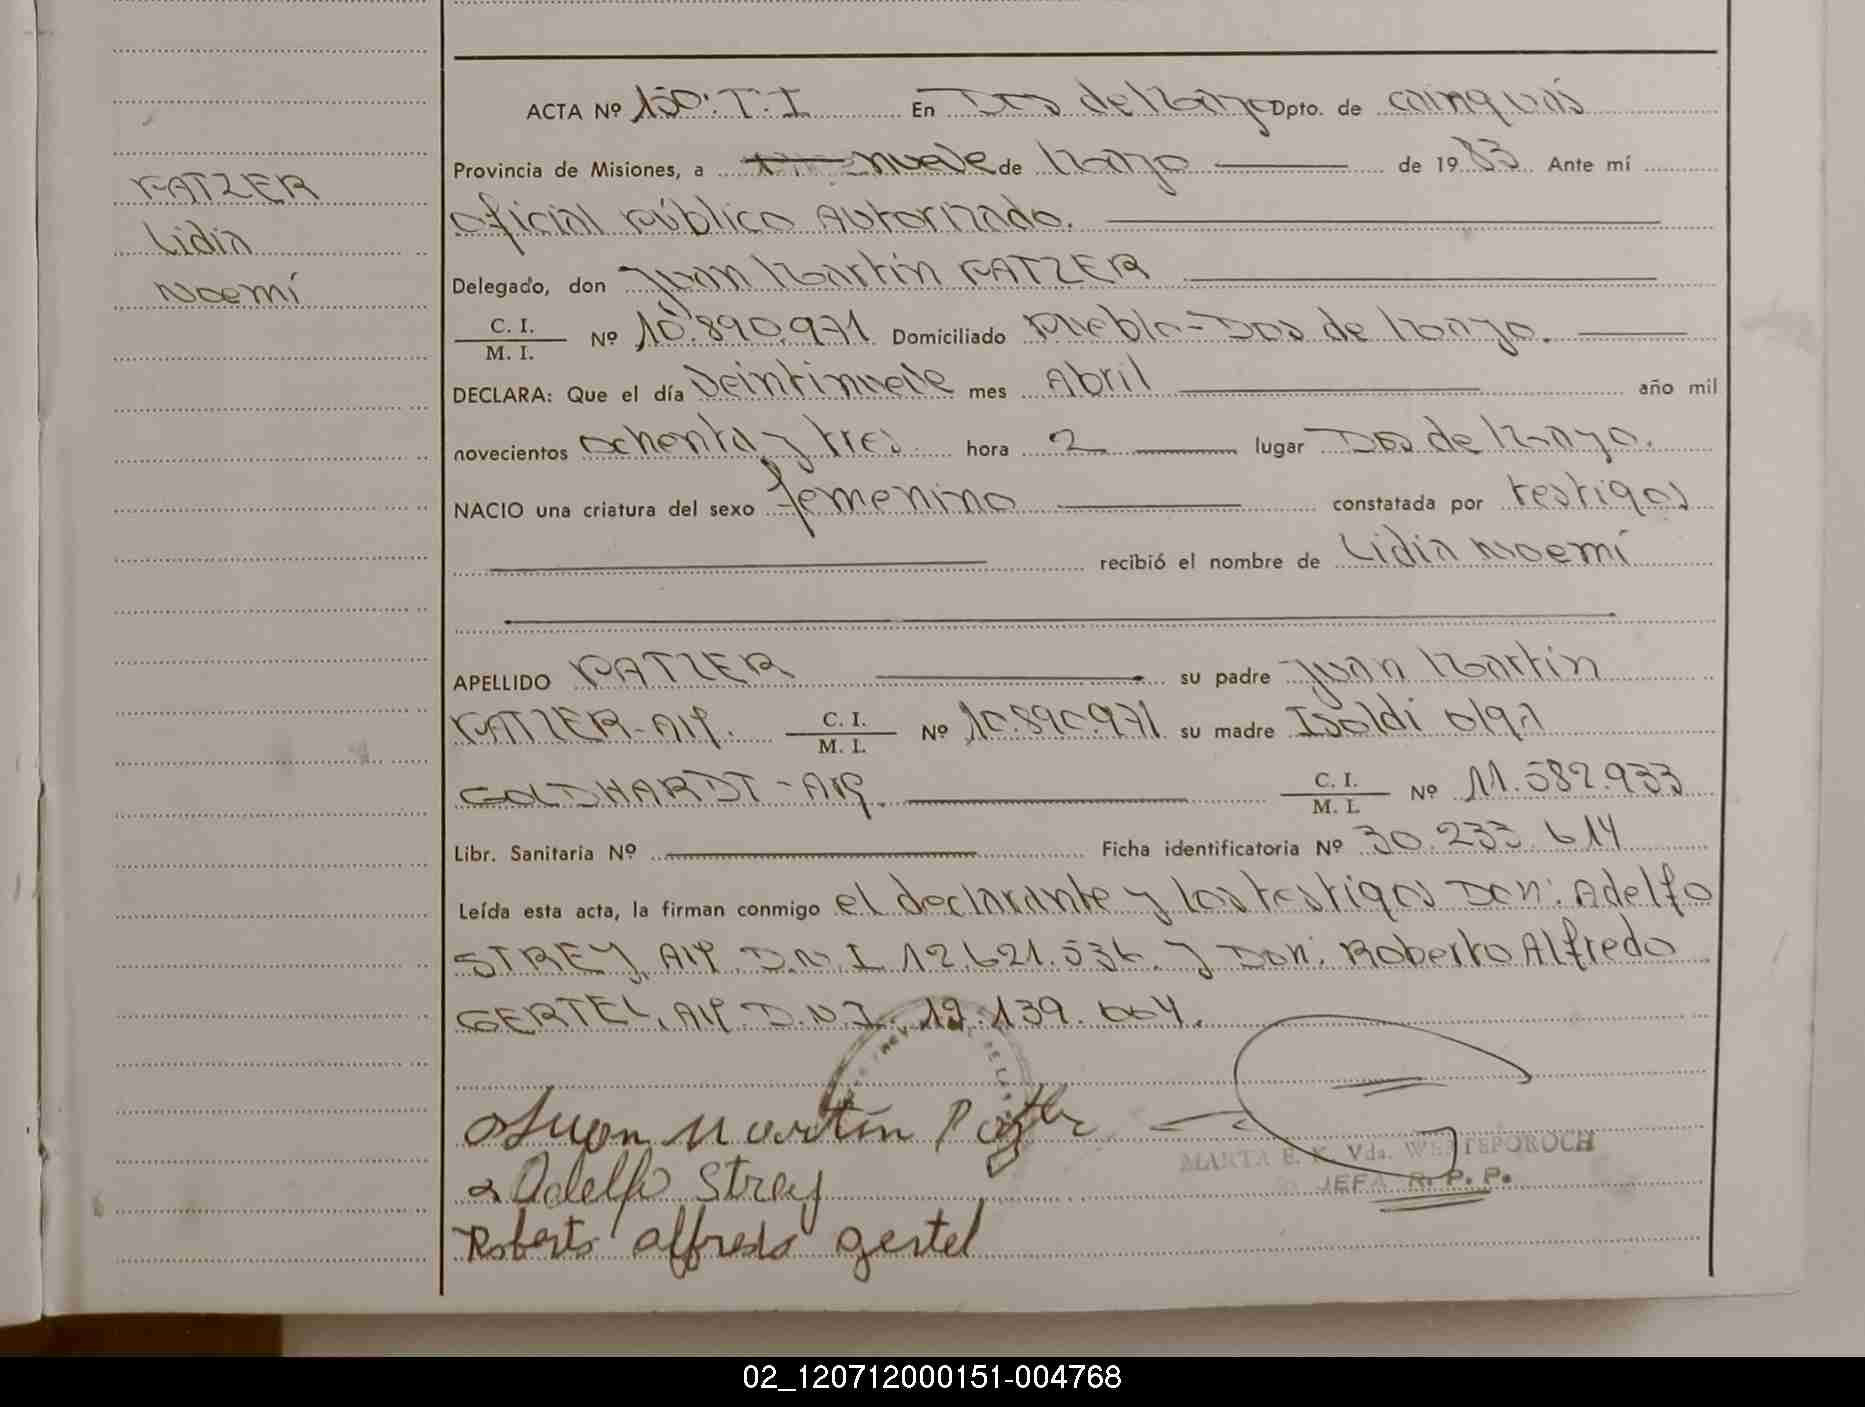 PATZER
Lidia
Noemí
ACTA Nº 150. T. I En Dos de Mayo Dpto. de Cainguás
Provincia de Misiones, a nueve de Mayo de 1983. Ante mí
Oficial Público Autorizado.
Delegado, don Juan Martín PATZER
C. I. / M. I. Nº 10.890.971 Domiciliado Pueblo-Dos de Mayo.
DECLARA: Que el día Veintinueve mes Abril año mil
novecientos Ochenta y tres hora 2 lugar Dos de Mayo.
NACIO una criatura del sexo femenino constatada por testigos
recibió el nombre de Lidia Noemí
APELLIDO PATZER su padre Juan Martín
PATZER-Arg. C. I. / M. I. Nº 10.890.971 su madre Isoldi Olga
GOLDHARDT-Arg. C. I. / M. I. Nº 11.582.933
Libr. Sanitaria Nº Ficha identificatoria Nº 30.233.614
Leída esta acta, la firman conmigo el declarante y los testigos Don: Adelfo
STREY, Arg. D.N.I 12.621.536. y Don: Roberto Alfredo
GERTEL, Arg. D.N.I. 12.139.664.
Juan Martín Patzer
Adelfo Strey
MARTA E. K. Vda. WESTEPOROCH
JEFA R. P. P.
Roberto alfredo gertel
02_120712000151-004768